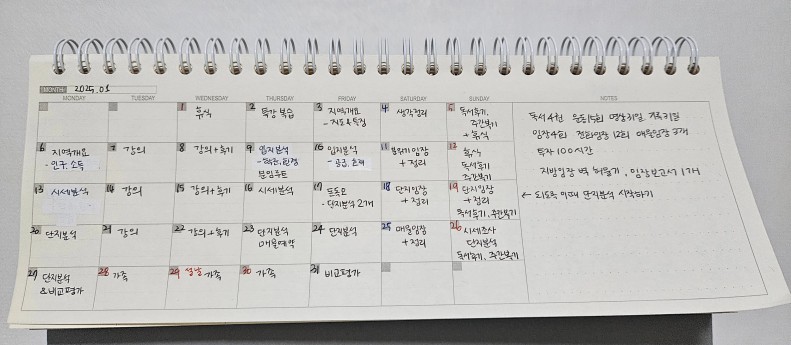 MONTH 2025.01
MONDAY TUESDAY WEDNESDAY THURSDAY FRIDAY SATURDAY SUNDAY NOTES
1 휴식
2 특강 복습
3 지역개요
- 지도 & 특징
4 생각정리
5 독서후기,
주간복기
+ 휴식
6 지역개요
- 인구, 소득
7 강의
8 강의 + 후기
9 입지분석
분임루트
10 입지분석
- 공급,
11 분위기임장
+ 정리
12 휴식
독서후기
주간복기
13 시세분석
14 강의
15 강의 + 후기
16 시세분석
17
- 단지분석 2개
18 단지임장
+ 정리
19 단지임장
+ 정리
독서후기, 주간복기
20 단지분석
21 강의
22 강의 + 후기
23 단지분석
매물예약
24 단지분석
25 매물임장
+ 정리
26 시세조사
단지분석
독서후기, 주간복기
27 단지분석
& 비교평가
28 가족
29 설날 가족
30 가족
31 비교평가
독서 4권 운동 15회 명상 31일
임장 4회 전화임장 12회 매물임장
투자 100시간
지방임장 벽 허물기, 임장보고서 1개
← 되도록 이때 단지분석 시작하기